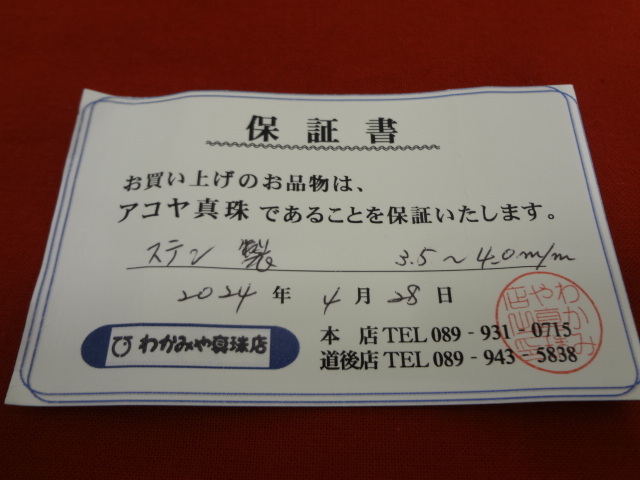 保証書
お買い上げのお品物は、
アコヤ真珠であることを保証いたします。
ステン 製 3.5～4.0m/m
2024年 4月 28日
わかみや真珠店
本 店 TEL 089-931-0715
道後店 TEL 089-943-5838
わかみ
や真珠
店之印